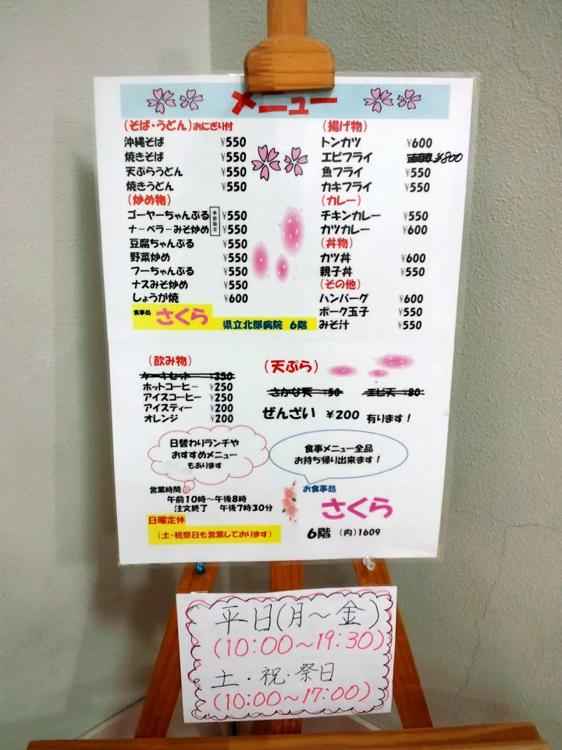 メニュー
(そば・うどん)おにぎり付
沖縄そば ¥550
焼きそば ¥550
天ぷらうどん ¥550
焼きうどん ¥550
(炒め物)
ゴーヤーちゃんぷる ¥550
ナーベラーみそ炒め ¥550
豆腐ちゃんぷる ¥550
野菜炒め ¥550
フーちゃんぷる ¥550
ナスみそ炒め ¥550
しょうが焼 ¥600
食事処 さくら 県立北部病院 6階
(揚げ物)
トンカツ ¥600
エビフライ ¥800
魚フライ ¥550
カキフライ ¥550
(カレー)
チキンカレー ¥550
カツカレー ¥600
(丼物)
カツ丼 ¥600
親子丼 ¥550
(その他)
ハンバーグ ¥600
ポーク玉子 ¥550
みそ汁 ¥550
(飲み物)
ケーキセット ¥350
ホットコーヒー ¥250
アイスコーヒー ¥250
アイスティー ¥200
オレンジ ¥200
(天ぷら)
さかな天 ¥50 エビ天 ¥80
ぜんざい ¥200 有ります!
日替わりランチや
おすすめメニュー
もあります
食事メニュー全品
お持ち帰り出来ます!
営業時間
午前10時~午後8時
注文終了 午後7時30分
日曜定休
(土・祝祭日も営業しております)
お食事処
さくら
6階 (内)1609
平日(月~金)
(10:00~19:30)
土・祝・祭日
(10:00~17:00)